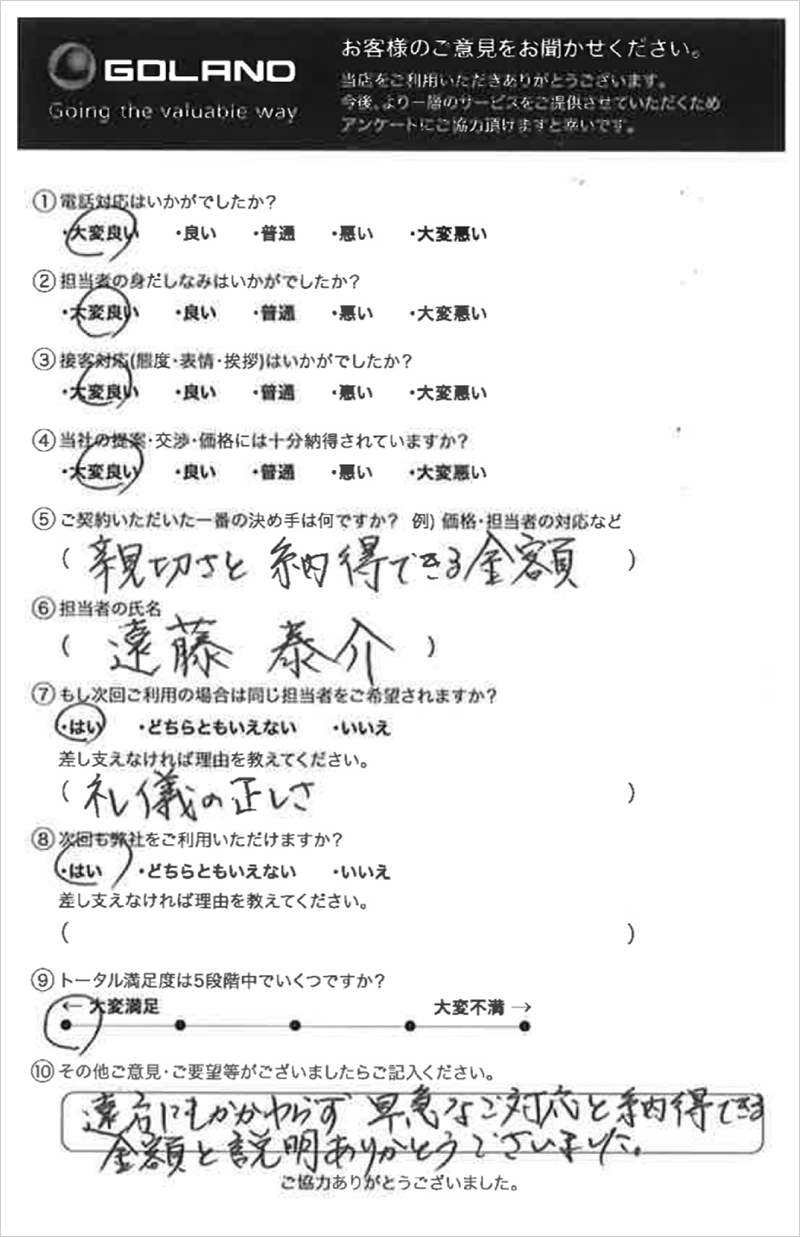 GOLAND
Going the valuable way
お客様のご意見をお聞かせください。
当店をご利用いただきありがとうございます。
今後、より一層のサービスをご提供させていただくため
アンケートにご協力頂けますと幸いです。
①電話対応はいかがでしたか?
・大変良い ・良い ・普通 ・悪い ・大変悪い
②担当者の身だしなみはいかがでしたか?
・大変良い ・良い ・普通 ・悪い ・大変悪い
③接客対応(態度・表情・挨拶)はいかがでしたか?
・大変良い ・良い ・普通 ・悪い ・大変悪い
④当社の提案・交渉・価格には十分納得されていますか?
・大変良い ・良い ・普通 ・悪い ・大変悪い
⑤ご契約いただいた一番の決め手は何ですか? 例) 価格・担当者の対応など
( 親切さと 納得できる金額 )
⑥担当者の氏名
( 遠藤 泰介 )
⑦もし次回ご利用の場合は同じ担当者をご希望されますか?
・はい ・どちらともいえない ・いいえ
差し支えなければ理由を教えてください。
( 礼儀の正しさ )
⑧次回も弊社をご利用いただけますか?
・はい ・どちらともいえない ・いいえ
差し支えなければ理由を教えてください。
( )
⑨トータル満足度は5段階中でいくつですか?
← 大変満足 大変不満 →
⑩その他ご意見・ご要望等がございましたらご記入ください。
遠方にもかかわらず 早急なご対応と納得できる
金額と説明ありがとうございました。
ご協力ありがとうございました。